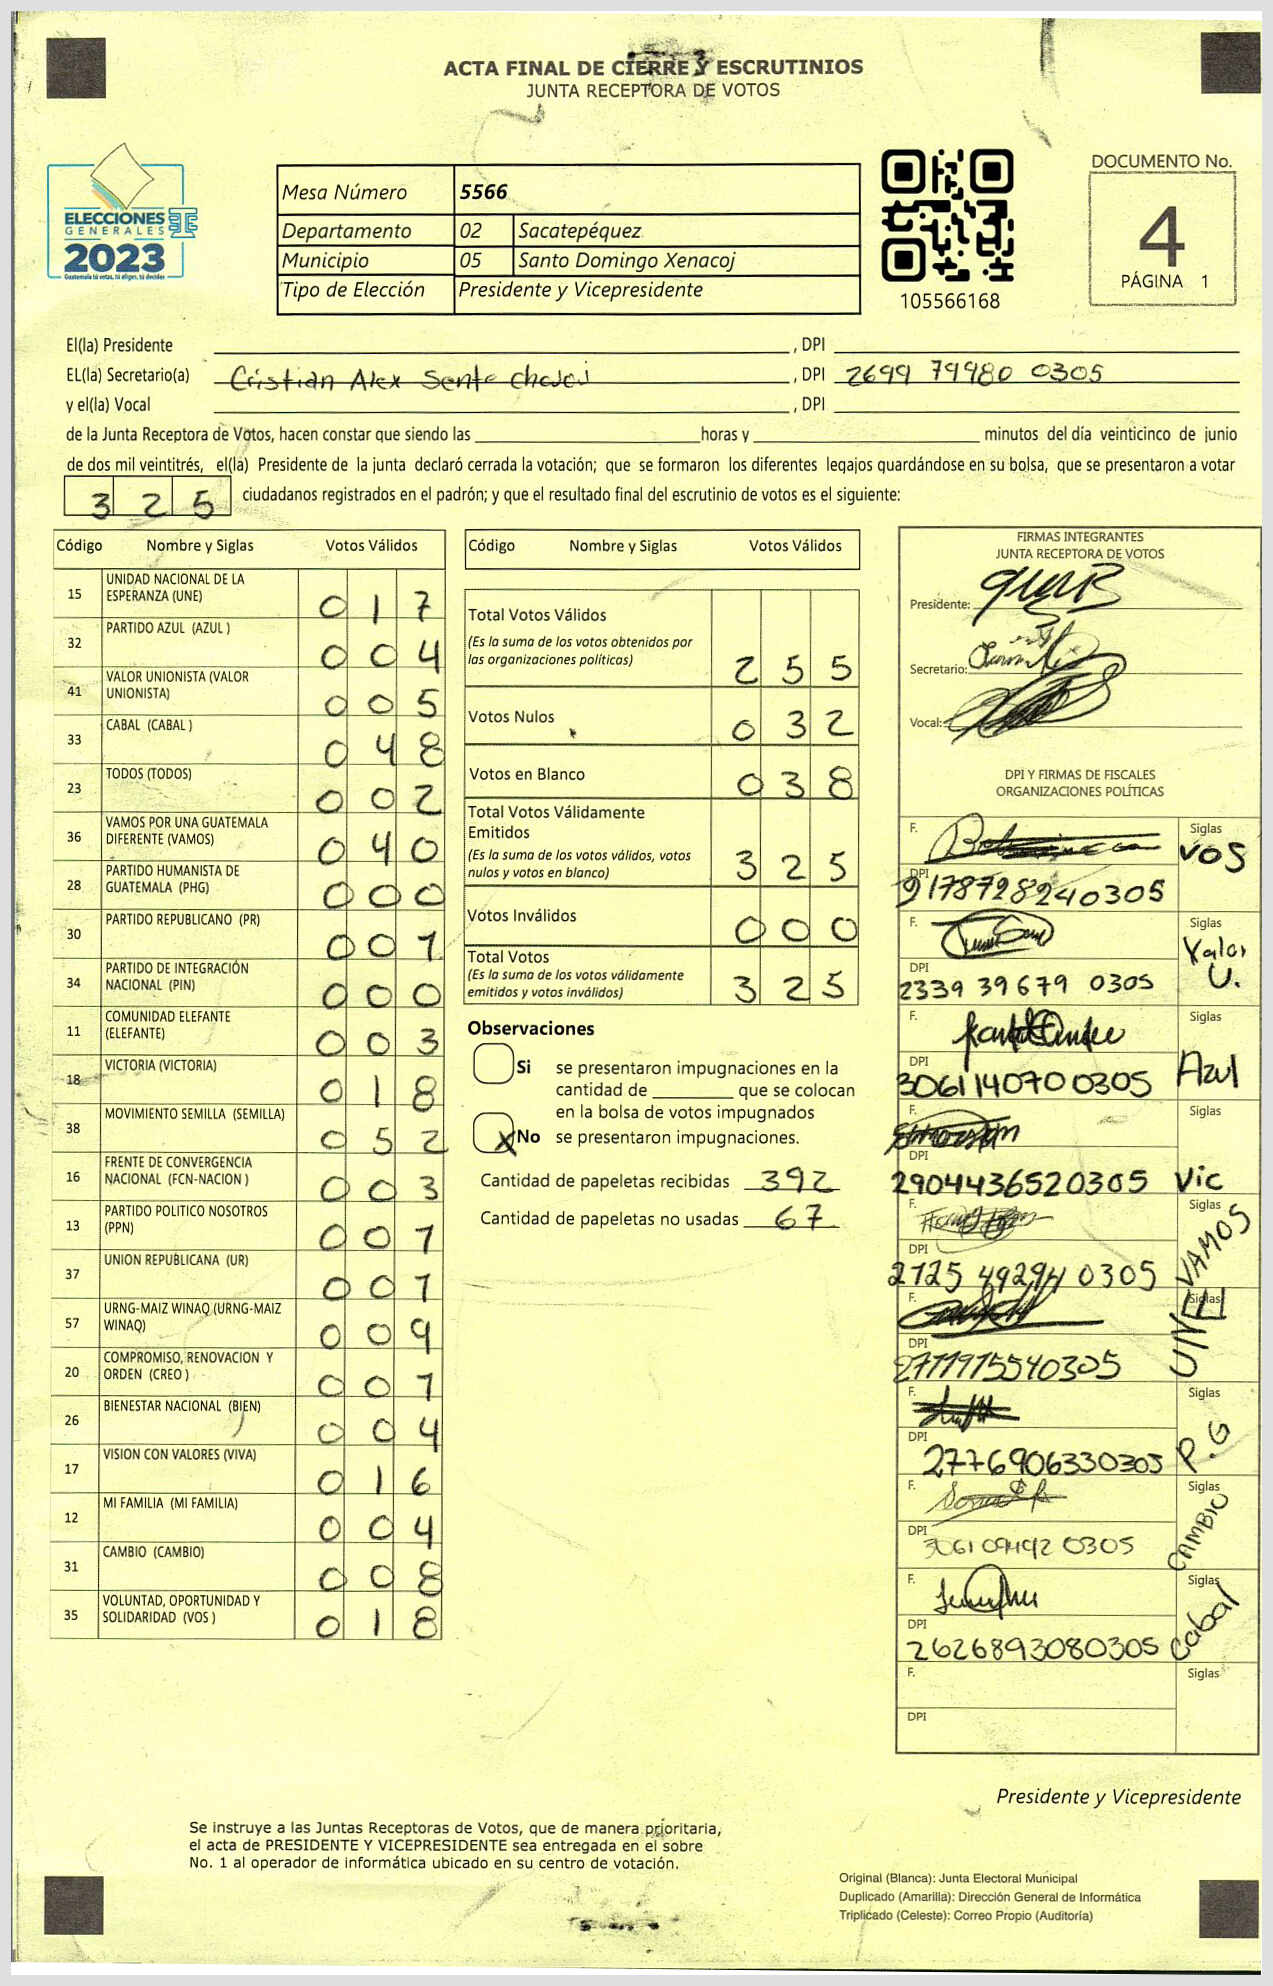 ACTA FINAL DE CIERRE Y ESCRUTINIOS
JUNTA RECEPTORA DE VOTOS
ELECCIONES
GENERALES
2023
Guatemala tú votas, tú eliges, tú decides
Mesa Número 5566
Departamento 02 Sacatepéquez
Municipio 05 Santo Domingo Xenacoj
Tipo de Elección Presidente y Vicepresidente
105566168
DOCUMENTO No.
4
PÁGINA 1
El(la) Presidente , DPI
EL(la) Secretario(a) Cristian Alex Sente , DPI 2699 79980 0305
y el(la) Vocal , DPI
de la Junta Receptora de Votos, hacen constar que siendo las horas y minutos del día veinticinco de junio
de dos mil veintitrés, el(la) Presidente de la junta declaró cerrada la votación; que se formaron los diferentes legajos guardándose en su bolsa, que se presentaron a votar
325 ciudadanos registrados en el padrón; y que el resultado final del escrutinio de votos es el siguiente:
Código Nombre y Siglas Votos Válidos
15 UNIDAD NACIONAL DE LA ESPERANZA (UNE) 017
32 PARTIDO AZUL (AZUL ) 004
41 VALOR UNIONISTA (VALOR UNIONISTA) 005
33 CABAL (CABAL ) 048
23 TODOS (TODOS) 002
36 VAMOS POR UNA GUATEMALA DIFERENTE (VAMOS) 040
28 PARTIDO HUMANISTA DE GUATEMALA (PHG) 000
30 PARTIDO REPUBLICANO (PR) 001
34 PARTIDO DE INTEGRACIÓN NACIONAL (PIN) 000
11 COMUNIDAD ELEFANTE (ELEFANTE) 003
18 VICTORIA (VICTORIA) 018
38 MOVIMIENTO SEMILLA (SEMILLA) 052
16 FRENTE DE CONVERGENCIA NACIONAL (FCN-NACION ) 003
13 PARTIDO POLITICO NOSOTROS (PPN) 001
37 UNION REPUBLICANA (UR) 001
57 URNG-MAIZ WINAQ (URNG-MAIZ WINAQ) 009
20 COMPROMISO, RENOVACION Y ORDEN (CREO ) 001
26 BIENESTAR NACIONAL (BIEN) 004
17 VISION CON VALORES (VIVA) 016
12 MI FAMILIA (MI FAMILIA) 004
31 CAMBIO (CAMBIO) 008
35 VOLUNTAD, OPORTUNIDAD Y SOLIDARIDAD (VOS ) 018
Código Nombre y Siglas Votos Válidos
Total Votos Válidos
(Es la suma de los votos obtenidos por
las organizaciones políticas) 255
Votos Nulos 032
Votos en Blanco 038
Total Votos Válidamente
Emitidos
(Es la suma de los votos válidos, votos
nulos y votos en blanco) 325
Votos Inválidos 000
Total Votos
(Es la suma de los votos válidamente
emitidos y votos inválidos) 325
Observaciones
Si se presentaron impugnaciones en la
cantidad de que se colocan
en la bolsa de votos impugnados
X No se presentaron impugnaciones.
Cantidad de papeletas recibidas 392
Cantidad de papeletas no usadas 67
FIRMAS INTEGRANTES
JUNTA RECEPTORA DE VOTOS
Presidente:
Secretario:
Vocal:
DPI Y FIRMAS DE FISCALES
ORGANIZACIONES POLÍTICAS
F. Siglas
VOS
DPI
9178728240305
F. Siglas
Valor
U.
DPI
2339 39679 0305
F. Siglas
Azul
DPI
3061140700305
F. Siglas
DPI
2904436520305 Vic
F. Siglas
VAMOS
DPI
2725 49294 0305
F. Siglas
UNE
DPI
2771975540305
F. Siglas
P.G
DPI
2776906330305
F. Siglas
CAMBIO
DPI
F. Siglas
Cabal
DPI
2626893080305
F. Siglas
DPI
Presidente y Vicepresidente
Se instruye a las Juntas Receptoras de Votos, que de manera prioritaria,
el acta de PRESIDENTE Y VICEPRESIDENTE sea entregada en el sobre
No. 1 al operador de informática ubicado en su centro de votación.
Original (Blanca): Junta Electoral Municipal
Duplicado (Amarilla): Dirección General de Informática
Triplicado (Celeste): Correo Propio (Auditoría)